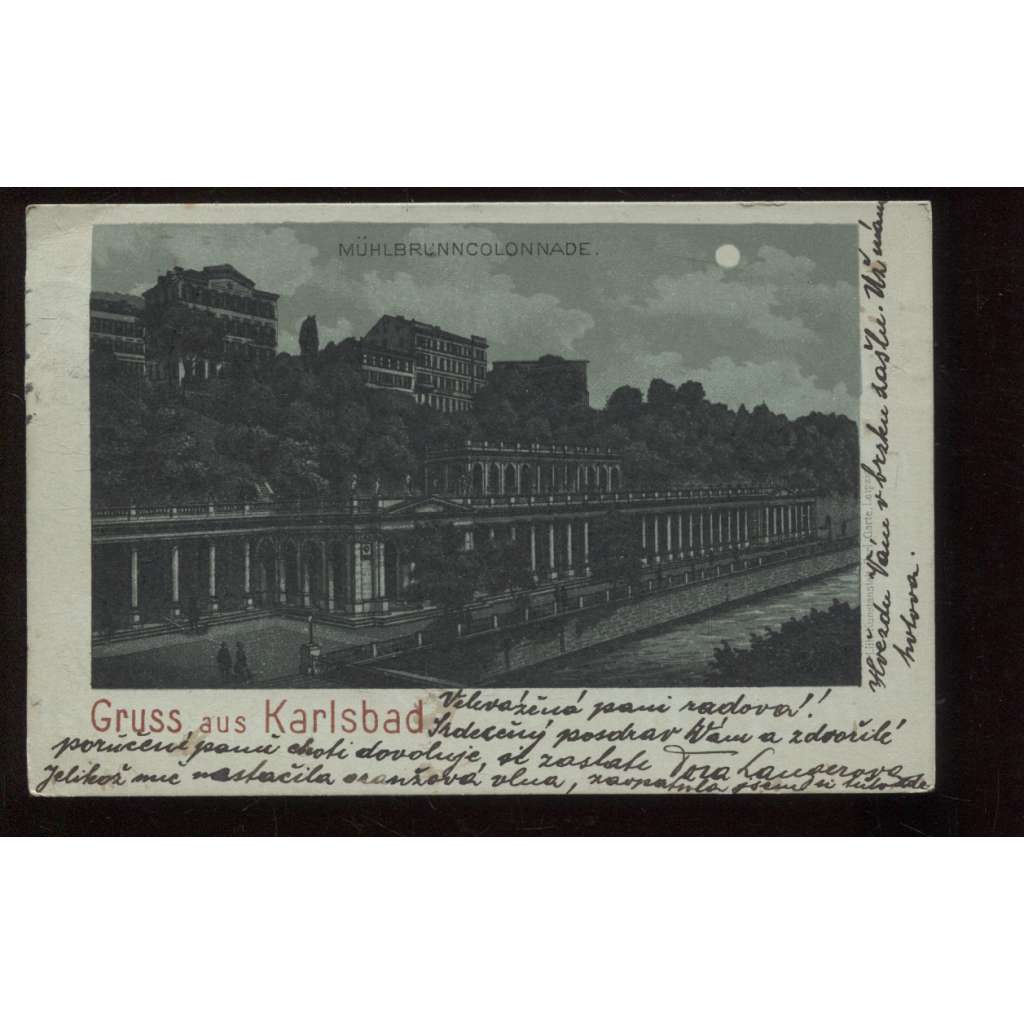 MÜHLBRUNNCOLONNADE.
Gruss aus Karlsbad
Velevážená paní radova!!
Srdečný pozdrav Vám a zdvořilé
poručení panu choti dovoluje si zaslati Dora Langerova
Jelikož mě nestačila oranžova vlna, zaopatřila jsem si tuto zde
Hvezdu Vám v brzku zašlu. Už mám
hotova.